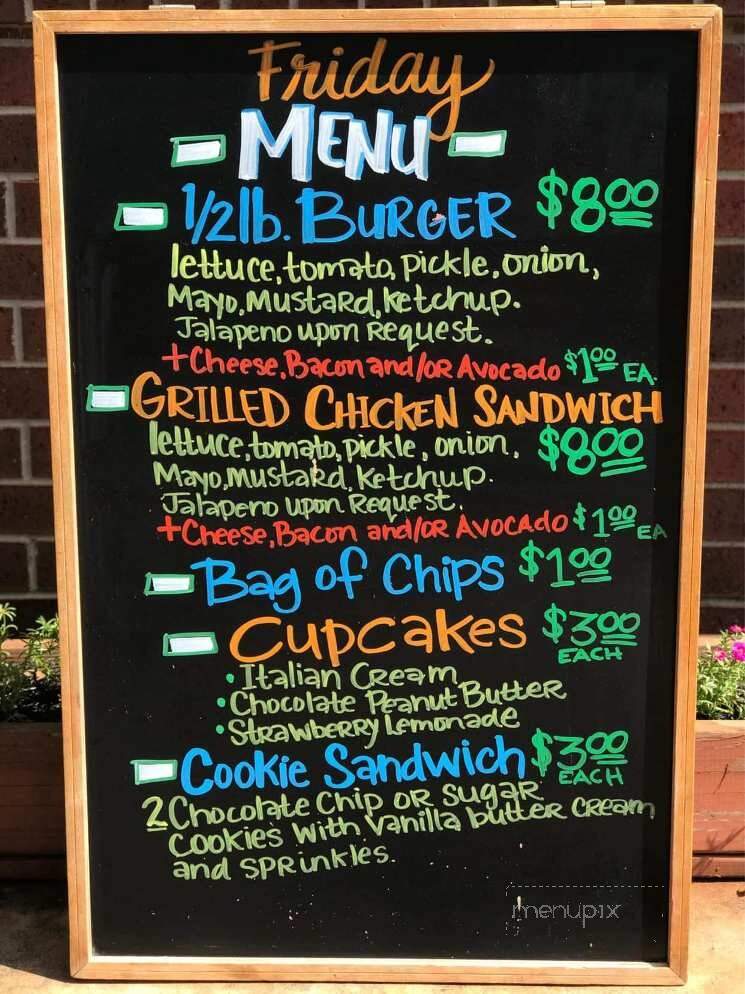 Friday
MENU
1/2lb. BURGER $8.00
lettuce, tomato, pickle, onion,
Mayo, Mustard, ketchup.
Jalapeno upon Request.
+Cheese, Bacon and/or Avocado $1.00 EA.
GRILLED CHICKEN SANDWICH
lettuce, tomato, pickle, onion, $8.00
Mayo, Mustard, Ketchup.
Jalapeno upon Request.
+Cheese, Bacon and/or Avocado $1.00 EA
Bag of Chips $1.00
Cupcakes $3.00
EACH
• Italian Cream
• Chocolate Peanut Butter
• Strawberry Lemonade
Cookie Sandwich $3.00
EACH
2 Chocolate Chip or Sugar
Cookies with Vanilla butter cream
and sprinkles.
menupix